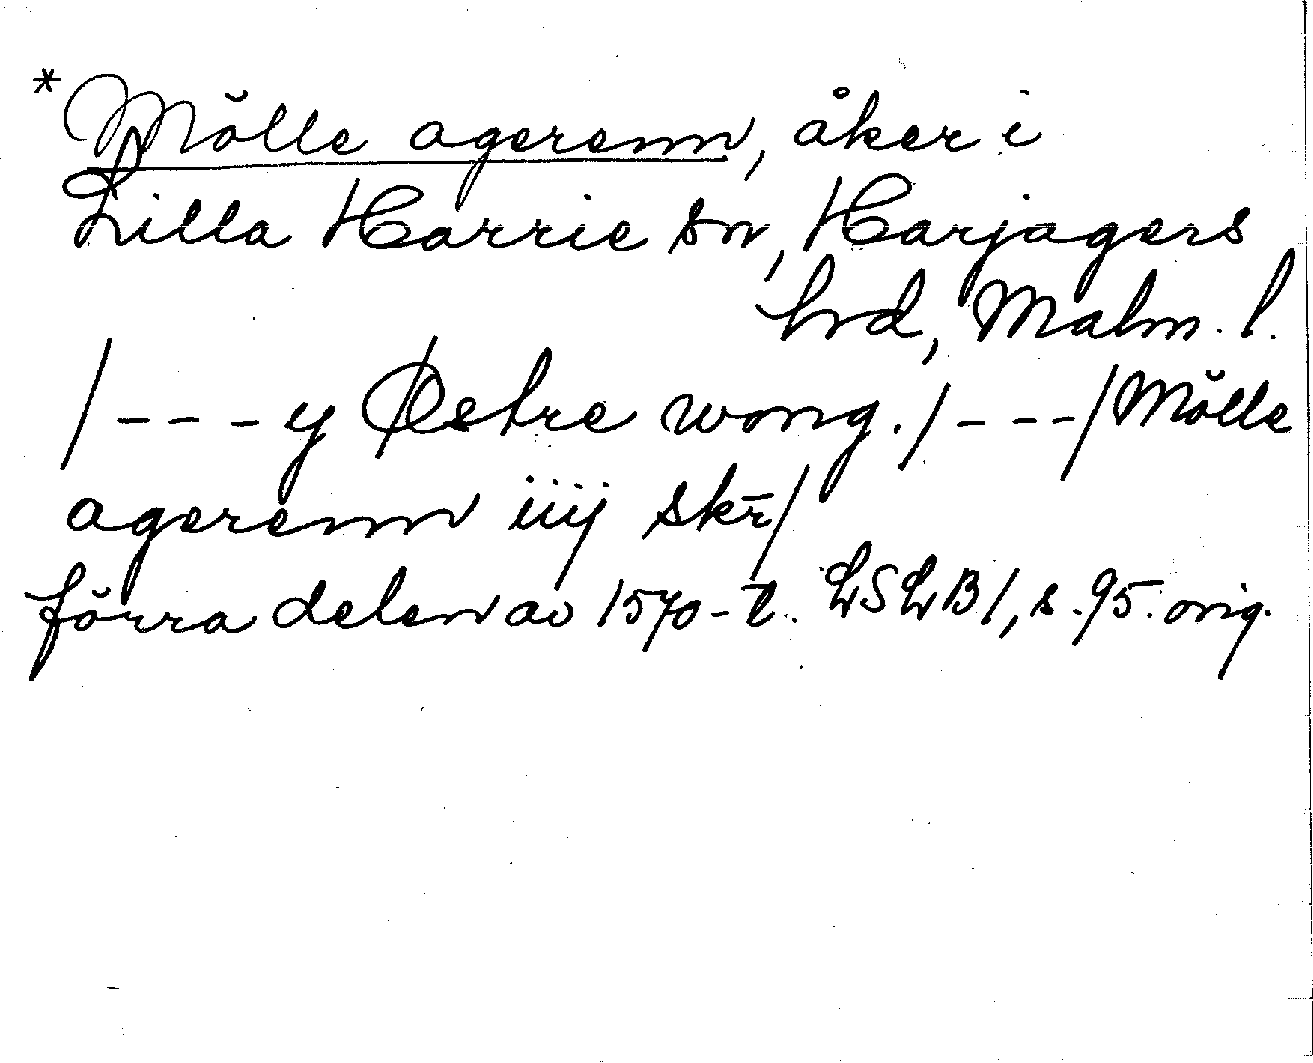 *Mŏlle agerenn, åker i
Lilla Harrie sn, Harjagers
hrd, Malm. l.
/---y Østre wong./---/Mŏlle
agerenn iiij skr̄/
förra delen av 1570-t. LSLB1, s.95. orig.